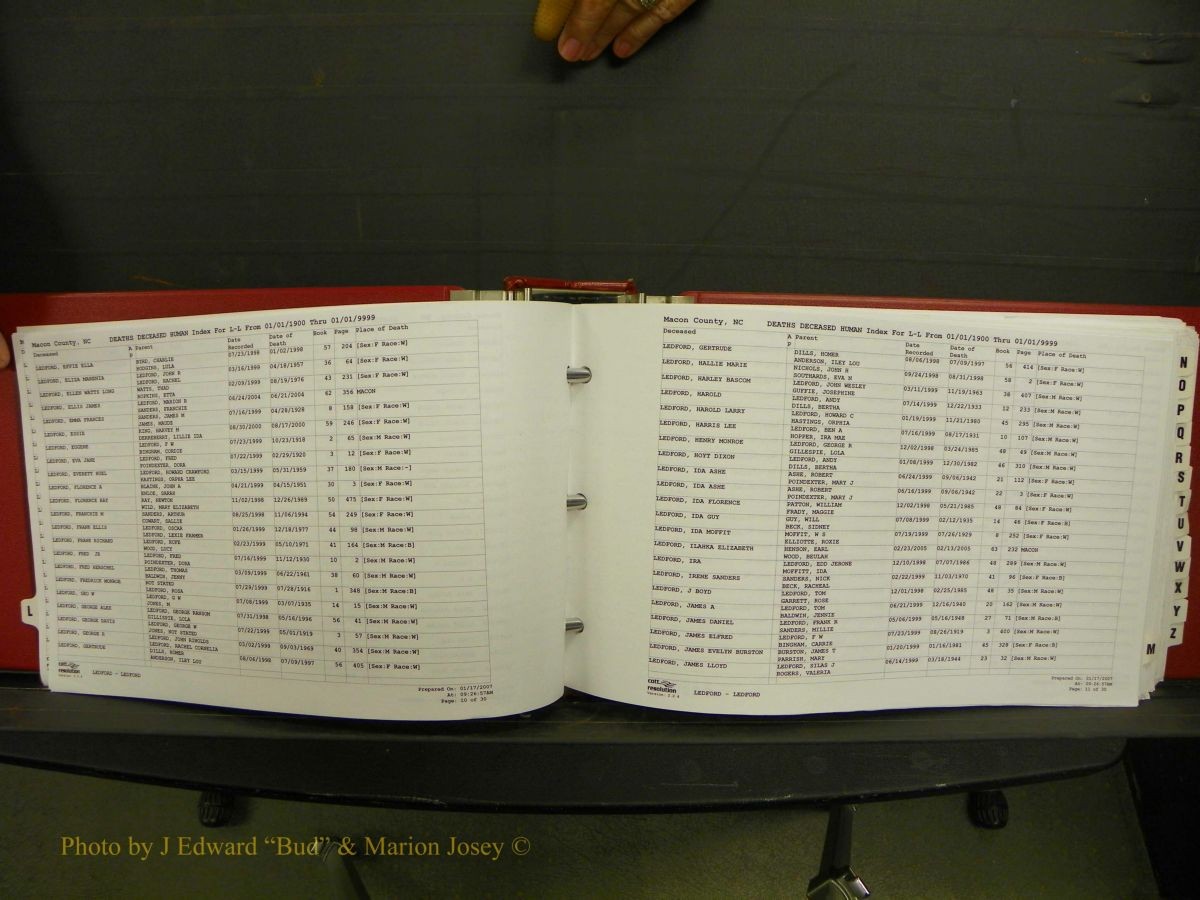 Macon County, NC DEATHS DECEASED HUMAN Index For L-L From 01/01/1900 Thru 01/01/9999
Deceased A Parent Date Recorded Date of Death Book Page Place of Death
P
LEDFORD, EFFIE ELLA BIRD, CHARLIE 07/23/1998 01/02/1998 57 204 [Sex:F Race:W]
HODGINS, LULA
LEDFORD, ELIZA MANERVIA LEDFORD, JOHN R 03/16/1999 04/18/1957 36 64 [Sex:F Race:W]
LEDFORD, RACHEL
LEDFORD, ELLEN WATTS LONG WATTS, THAD 02/09/1999 08/19/1976 43 231 [Sex:F Race:W]
HOPKINS, ETTA
LEDFORD, ELLIS JAMES LEDFORD, MARION B 06/24/2004 06/21/2004 62 356 MACON
SANDERS, FRANCHIE
LEDFORD, EMMA FRANCES SANDERS, JAMES M 07/16/1999 04/28/1928 8 158 [Sex:F Race:W]
JAMES, MAUDE
LEDFORD, ESSIE KING, HARVEY M 08/30/2000 08/17/2000 59 246 [Sex:F Race:W]
DERREBERRY, LILLIE IDA
LEDFORD, EUGENE LEDFORD, F W 07/23/1999 10/23/1918 2 65 [Sex:M Race:W]
BINGHAM, CORICE
LEDFORD, EVA JANE LEDFORD, FRED 07/22/1999 02/29/1920 3 12 [Sex:F Race:W]
POINDEXTER, DORA
LEDFORD, EVERETT NOEL LEDFORD, HOWARD CRAWFORD 03/15/1999 05/31/1959 37 180 [Sex:M Race:-]
HASTINGS, ORPHA LEE
LEDFORD, FLORENCE A BLAINE, JOHN A 04/21/1999 04/15/1951 30 3 [Sex:F Race:W]
ENLOE, SARAH
LEDFORD, FLORENCE RAY RAY, NEWTON 11/02/1998 12/26/1989 50 475 [Sex:F Race:W]
WILD, MARY ELIZABETH
LEDFORD, FRANCHIE M SANDERS, ARTHUR 08/25/1998 11/06/1994 54 249 [Sex:F Race:W]
COWART, SALLIE
LEDFORD, FRANK ELLIS LEDFORD, OSCAR 01/26/1999 12/18/1977 44 98 [Sex:M Race:W]
LEDFORD, LEXIE FARMER
LEDFORD, FRANK RICHARD LEDFORD, ROPE 02/23/1999 05/10/1971 41 164 [Sex:M Race:B]
WOOD, LUCY
LEDFORD, FRED JR LEDFORD, FRED 07/16/1999 11/12/1930 10 2 [Sex:M Race:W]
POINDEXTER, DORA
LEDFORD, FRED HERSCHEL LEDFORD, THOMAS 03/09/1999 06/22/1961 38 60 [Sex:M Race:W]
BALDWIN, JENNY
LEDFORD, FREDRICK MONROE NOT STATED 07/29/1999 07/28/1916 1 348 [Sex:M Race:B]
LEDFORD, ROSA
LEDFORD, GEO W LEDFORD, G W 07/08/1999 03/07/1935 14 15 [Sex:M Race:W]
JONES, M
LEDFORD, GEORGE ALEX LEDFORD, GEORGE RANSOM 07/31/1998 05/16/1996 56 41 [Sex:M Race:W]
GILLESPIE, LOLA
LEDFORD, GEORGE DAVIS LEDFORD, GEORGE W 07/22/1999 05/01/1919 3 57 [Sex:M Race:W]
JONES, NOT STATED
LEDFORD, GEORGE R LEDFORD, JOHN 03/02/1999 09/03/1969 40 354 [Sex:M Race:W]
LEDFORD, RACHEL CORNELIA
LEDFORD, GERTRUDE DILLS, HOMER 08/06/1998 07/09/1997 56 405 [Sex:F Race:W]
ANDERSON, ILEY LOU
cott resolution
LEDFORD - LEDFORD
Prepared On: 01/17/2007
At: 09:26:57AM
Page: 10 of 30
L
Macon County, NC DEATHS DECEASED HUMAN Index For L-L From 01/01/1900 Thru 01/01/9999
Deceased A Parent Date Recorded Date of Death Book Page Place of Death
P
LEDFORD, GERTRUDE DILLS, HOMER 08/06/1998 07/09/1997 56 414 [Sex:F Race:W]
ANDERSON, ILEY LOU
LEDFORD, HALLIE MARIE NICHOLS, JOHN H 09/24/1998 08/31/1998 58 2 [Sex:F Race:W]
SOUTHARDS, EVA N
LEDFORD, HARLEY BASCOM LEDFORD, JOHN WESLEY 03/11/1999 11/19/1963 38 407 [Sex:M Race:W]
GUFFIE, JOSEPHINE
LEDFORD, HAROLD LEDFORD, ANDY 07/14/1999 12/22/1933 12 233 [Sex:M Race:W]
DILLS, BERTHA
LEDFORD, HAROLD LARRY LEDFORD, HOWARD C 01/19/1999 11/21/1980 45 295 [Sex:M Race:W]
HASTINGS, ORPHIA
LEDFORD, HARRIS LEE LEDFORD, BEN A 07/16/1999 08/17/1931 10 107 [Sex:M Race:W]
HOPPER, IRA MAE
LEDFORD, HENRY MONROE LEDFORD, GEORGE R 12/02/1998 03/24/1985 48 49 [Sex:M Race:W]
GILLESPIE, LOLA
LEDFORD, HOYT DIXON LEDFORD, ANDY 01/08/1999 12/30/1982 46 310 [Sex:M Race:W]
DILLS, BERTHA
LEDFORD, IDA ASHE ASHE, ROBERT 06/24/1999 09/06/1942 21 112 [Sex:F Race:W]
POINDEXTER, MARY J
LEDFORD, IDA ASHE ASHE, ROBERT 06/16/1999 09/06/1942 22 3 [Sex:F Race:W]
POINDEXTER, MARY J
LEDFORD, IDA FLORENCE PATTON, WILLIAM 12/02/1998 05/21/1985 48 84 [Sex:F Race:W]
FRADY, MAGGIE
LEDFORD, IDA GUY GUY, WILL 07/08/1999 02/12/1935 14 46 [Sex:F Race:B]
BECK, SIDNEY
LEDFORD, IDA MOFFIT MOFFIT, W S 07/19/1999 07/26/1929 8 252 [Sex:F Race:W]
ELLIOTTE, ROXIE
LEDFORD, ILAHKA ELIZABETH HENSON, EARL 02/23/2005 02/13/2005 63 232 MACON
WOOD, BEULAH
LEDFORD, IRA LEDFORD, EDD JERONE 12/10/1998 07/07/1986 48 289 [Sex:M Race:W]
MOFFITT, IDA
LEDFORD, IRENE SANDERS SANDERS, NICK 02/22/1999 11/03/1970 41 96 [Sex:F Race:B]
BECK, RACHEAL
LEDFORD, J BOYD LEDFORD, TOM 12/01/1998 02/25/1985 48 35 [Sex:M Race:W]
GARRETT, ROSE
LEDFORD, JAMES A LEDFORD, TOM 06/21/1999 12/16/1940 20 162 [Sex:M Race:W]
BALDWIN, JENNIE
LEDFORD, JAMES DANIEL LEDFORD, FRANK R 05/06/1999 05/16/1948 27 71 [Sex:M Race:B]
SANDERS, MILLIE
LEDFORD, JAMES ELFRED LEDFORD, F W 07/23/1999 08/26/1919 3 400 [Sex:M Race:W]
BINGHAM, CARRIE
LEDFORD, JAMES EVELYN BURSTON BURSTON, JAMES T 01/20/1999 01/16/1981 45 329 [Sex:F Race:B]
PARRISH, MARY
LEDFORD, JAMES LLOYD LEDFORD, SILAS J 06/14/1999 03/18/1944 23 32 [Sex:M Race:W]
ROGERS, VALERIA
cott resolution
LEDFORD - LEDFORD
Prepared On: 01/17/2007
At: 09:26:57AM
Page: 11 of 30
N
O
P
Q
R
S
T
U
V
W
X
Y
Z
M
Photo by J Edward “Bud” & Marion Josey ©